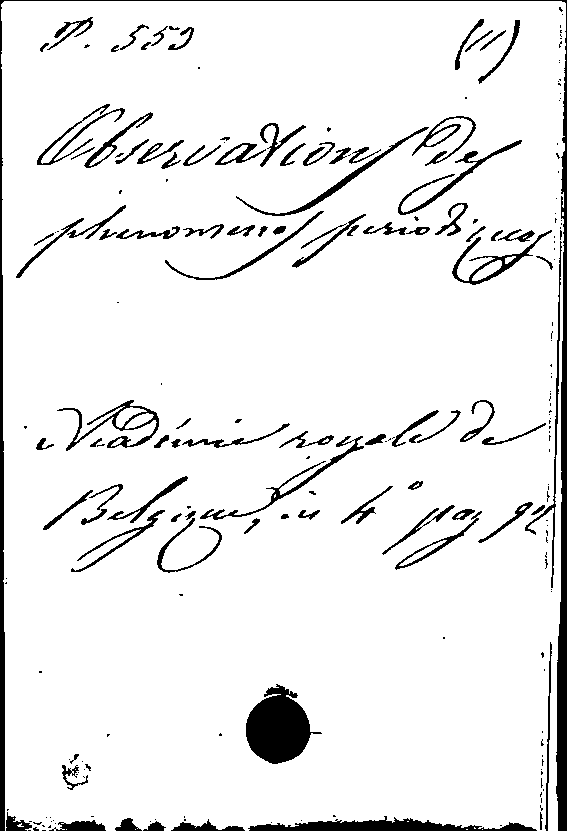 P. 553 (11)
Observations des
phenomenes periodiques
Académie royale de
Belgique, in 4° pag 92